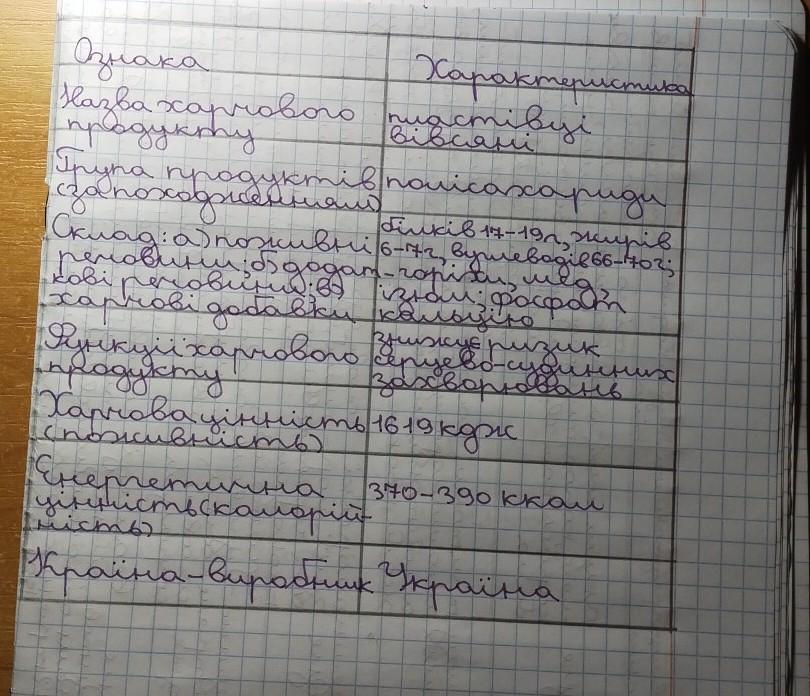 Ознака
Характеристика
Назва харчового
продукту
пластівці
вівсяні
Група продуктів
(за походженням)
полісахариди
Склад: а) поживні
речовини; б) додат-
кові речовини; в)
харчові добавки
білків 17-19г, жирів
6-7г, вуглеводів 66-70г;
горіхи, мед,
ізюм; фосфат
кальцію
Функції харчового
продукту
знижує ризик
серцево-судинних
захворювань
Харчова цінність
(поживність)
1619 кдж
Енергетична
цінність (калорій-
ність)
370-390 ккал
Країна-виробник
Україна